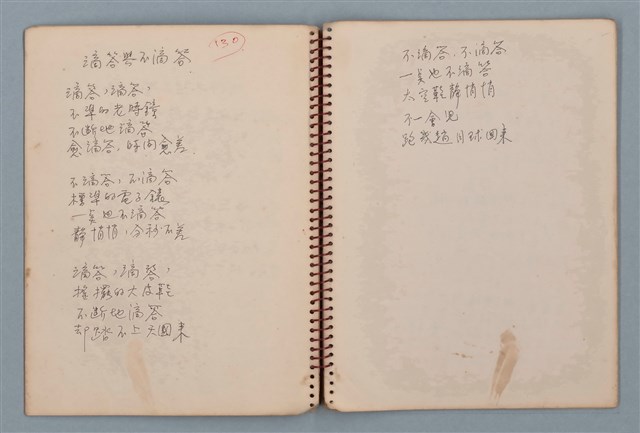 130
滴答與不滴答
滴答,滴答,
不準的老時鐘
不斷地滴答
愈滴答,時間愈差.
不滴答,不滴答
標準的電子錶
一點也不滴答
靜悄悄,分秒不差
滴答,滴答,
搖擺的大皮鞋
不斷地滴答
却踏不上天回來
不滴答、不滴答
一點也不滴答
太空鞋靜悄悄
不一會兒
跑我趟月球回來